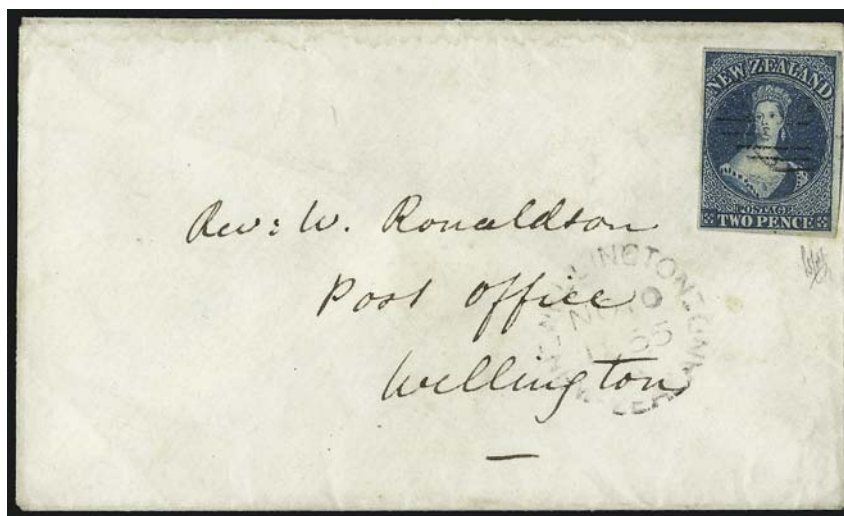 NEW ZEALAND
POSTAGE
TWO PENCE
Rev: W. Ronaldson
Post Office
Wellington
WELLINGTON
NEW ZEALAND